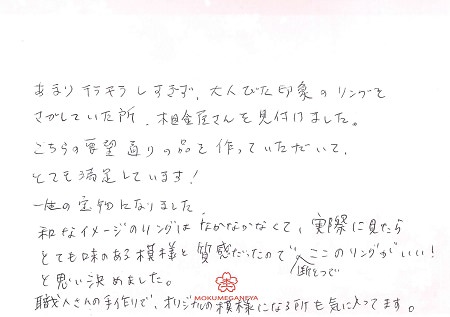 あまりキラキラしすぎず、大人びた印象のリングを
さがしていた所、杢目金屋さんを見付けました。
こちらの要望通りの品を作っていただいて、
とても満足しています！
一生の宝物になりました
和なイメージのリングは なかなかなくて、実際に見たら
とても味のある模様と質感だったので断とつでここのリングがいい！
と思い決めました。
職人さんの手作りで、オリジナルの模様になる所も気に入ってます。
MOKUMEGANEYA